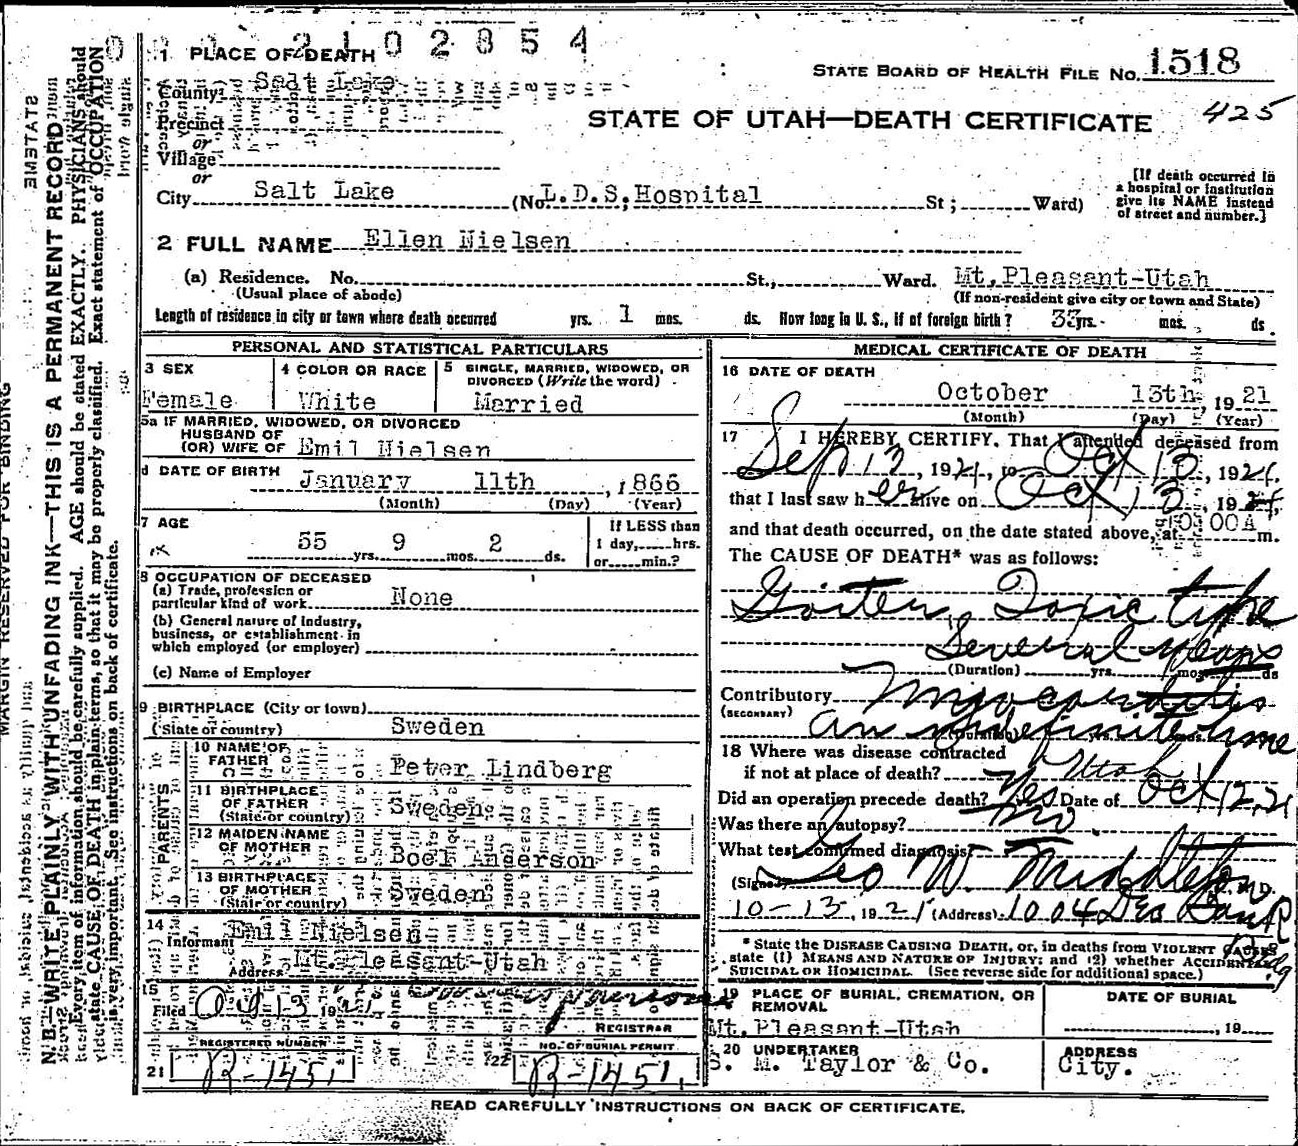 2102854
1 PLACE OF DEATH
STATE BOARD OF HEALTH FILE NO. 1518
County Salt Lake
425
STATE OF UTAH—DEATH CERTIFICATE
Precinct
or
Village
or
City Salt Lake (No. L.D.S. Hospital St; Ward)
[If death occurred in
a hospital or institution
give its NAME instead
of street and number.]
2 FULL NAME Ellen Nielsen
(a) Residence. No. St., Ward. Mt. Pleasant-Utah
(Usual place of abode) (If non-resident give city or town and State)
Length of residence in city or town where death occurred yrs. 1 mos. ds. How long in U. S., if of foreign birth? 33 yrs. mos. ds.
PERSONAL AND STATISTICAL PARTICULARS
3 SEX
Female
4 COLOR OR RACE
White
5 SINGLE, MARRIED, WIDOWED, OR
DIVORCED (Write the word)
Married
5a IF MARRIED, WIDOWED, OR DIVORCED
HUSBAND OF
(OR) WIFE OF Emil Nielsen
DATE OF BIRTH
January 11th, 1866
(Month) (Day) (Year)
7 AGE
55 yrs. 9 mos. 2 ds.
If LESS than
1 day, hrs.
or min.?
8 OCCUPATION OF DECEASED
(a) Trade, profession or
particular kind of work None
(b) General nature of industry,
business, or establishment in
which employed (or employer)
(c) Name of Employer
9 BIRTHPLACE (City or town)
(State or country) Sweden
PARENTS
10 NAME OF
FATHER Peter Lindberg
11 BIRTHPLACE
OF FATHER
(State or country) Sweden
12 MAIDEN NAME
OF MOTHER Boel Anderson
13 BIRTHPLACE
OF MOTHER
(State or country) Sweden
14
Informant Emil Nielsen
Address Mt. Pleasant-Utah
15
Filed Oct 13 192
REGISTRAR
REGISTERED NUMBER
21 B-1451
NO. OF BURIAL PERMIT
22 B-1451
MEDICAL CERTIFICATE OF DEATH
16 DATE OF DEATH
October 13th, 1921
(Month) (Day) (Year)
17 I HEREBY CERTIFY, That I attended deceased from
Sep 13, 1921, to Oct 13, 1921,
that I last saw her alive on Oct 13, 1921,
and that death occurred, on the date stated above, at 10:00A m.
The CAUSE OF DEATH* was as follows:
Goiter, Toxic type
Several years
(Duration) yrs. mos. ds
Contributory Myocarditis
(SECONDARY) an indefinite time
18 Where was disease contracted
if not at place of death? Utah
Did an operation precede death? Yes Date of Oct 12, 21
Was there an autopsy? No.
What test confirmed diagnosis
(Signed) Geo W. Middleton, M.D.
10-13, 1921 (Address) 1004 Des Bank Bldg
* State the DISEASE CAUSING DEATH, or, in deaths from VIOLENT CAUSES
state (1) MEANS AND NATURE OF INJURY; and (2) whether ACCIDENTAL,
SUICIDAL OR HOMICIDAL. (See reverse side for additional space.)
19 PLACE OF BURIAL, CREMATION, OR
REMOVAL
Mt. Pleasant-Utah
DATE OF BURIAL
, 19
20 UNDERTAKER
S. M. Taylor & Co.
ADDRESS
City.
READ CAREFULLY INSTRUCTIONS ON BACK OF CERTIFICATE.
MARGIN RESERVED FOR BINDING
N. B.—WRITE PLAINLY WITH UNFADING INK—THIS IS A PERMANENT RECORD
Every item of information should be carefully supplied. AGE should be stated EXACTLY. PHYSICIANS should
state CAUSE OF DEATH in plain terms, so that it may be properly classified. Exact statement of OCCUPATION
is very important. See instructions on back of certificate.